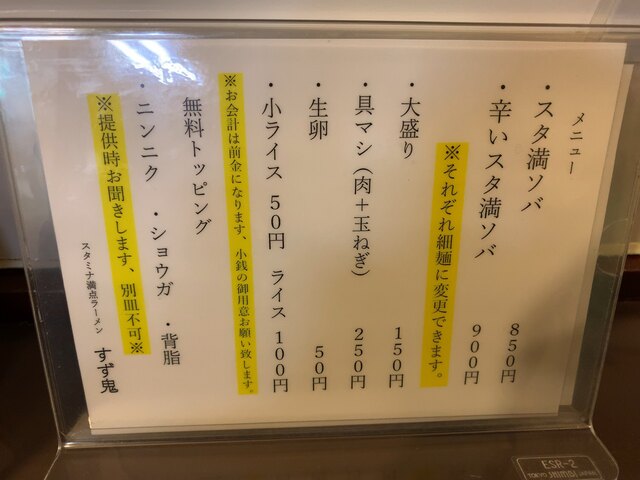 メニュー
・スタ満ソバ 850円
・辛いスタ満ソバ 900円
※それぞれ細麺に変更できます。
・大盛り 150円
・具マシ（肉＋玉ねぎ） 250円
・生卵 50円
・小ライス 50円 ライス 100円
※お会計は前金になります、小銭の御用意お願い致します。
無料トッピング
・ニンニク ・ショウガ ・背脂
※提供時お聞きします、別皿不可※
スタミナ満点ラーメン すず鬼
ESR-2
TOKYO SHIMBI JAPAN